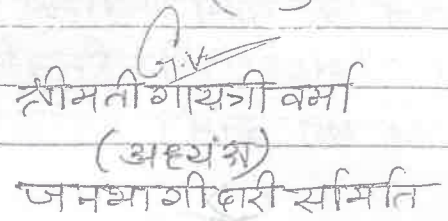 G.V.
श्रीमती गायत्री वर्मा
(अध्यक्ष)
जनभागीदारी समिति